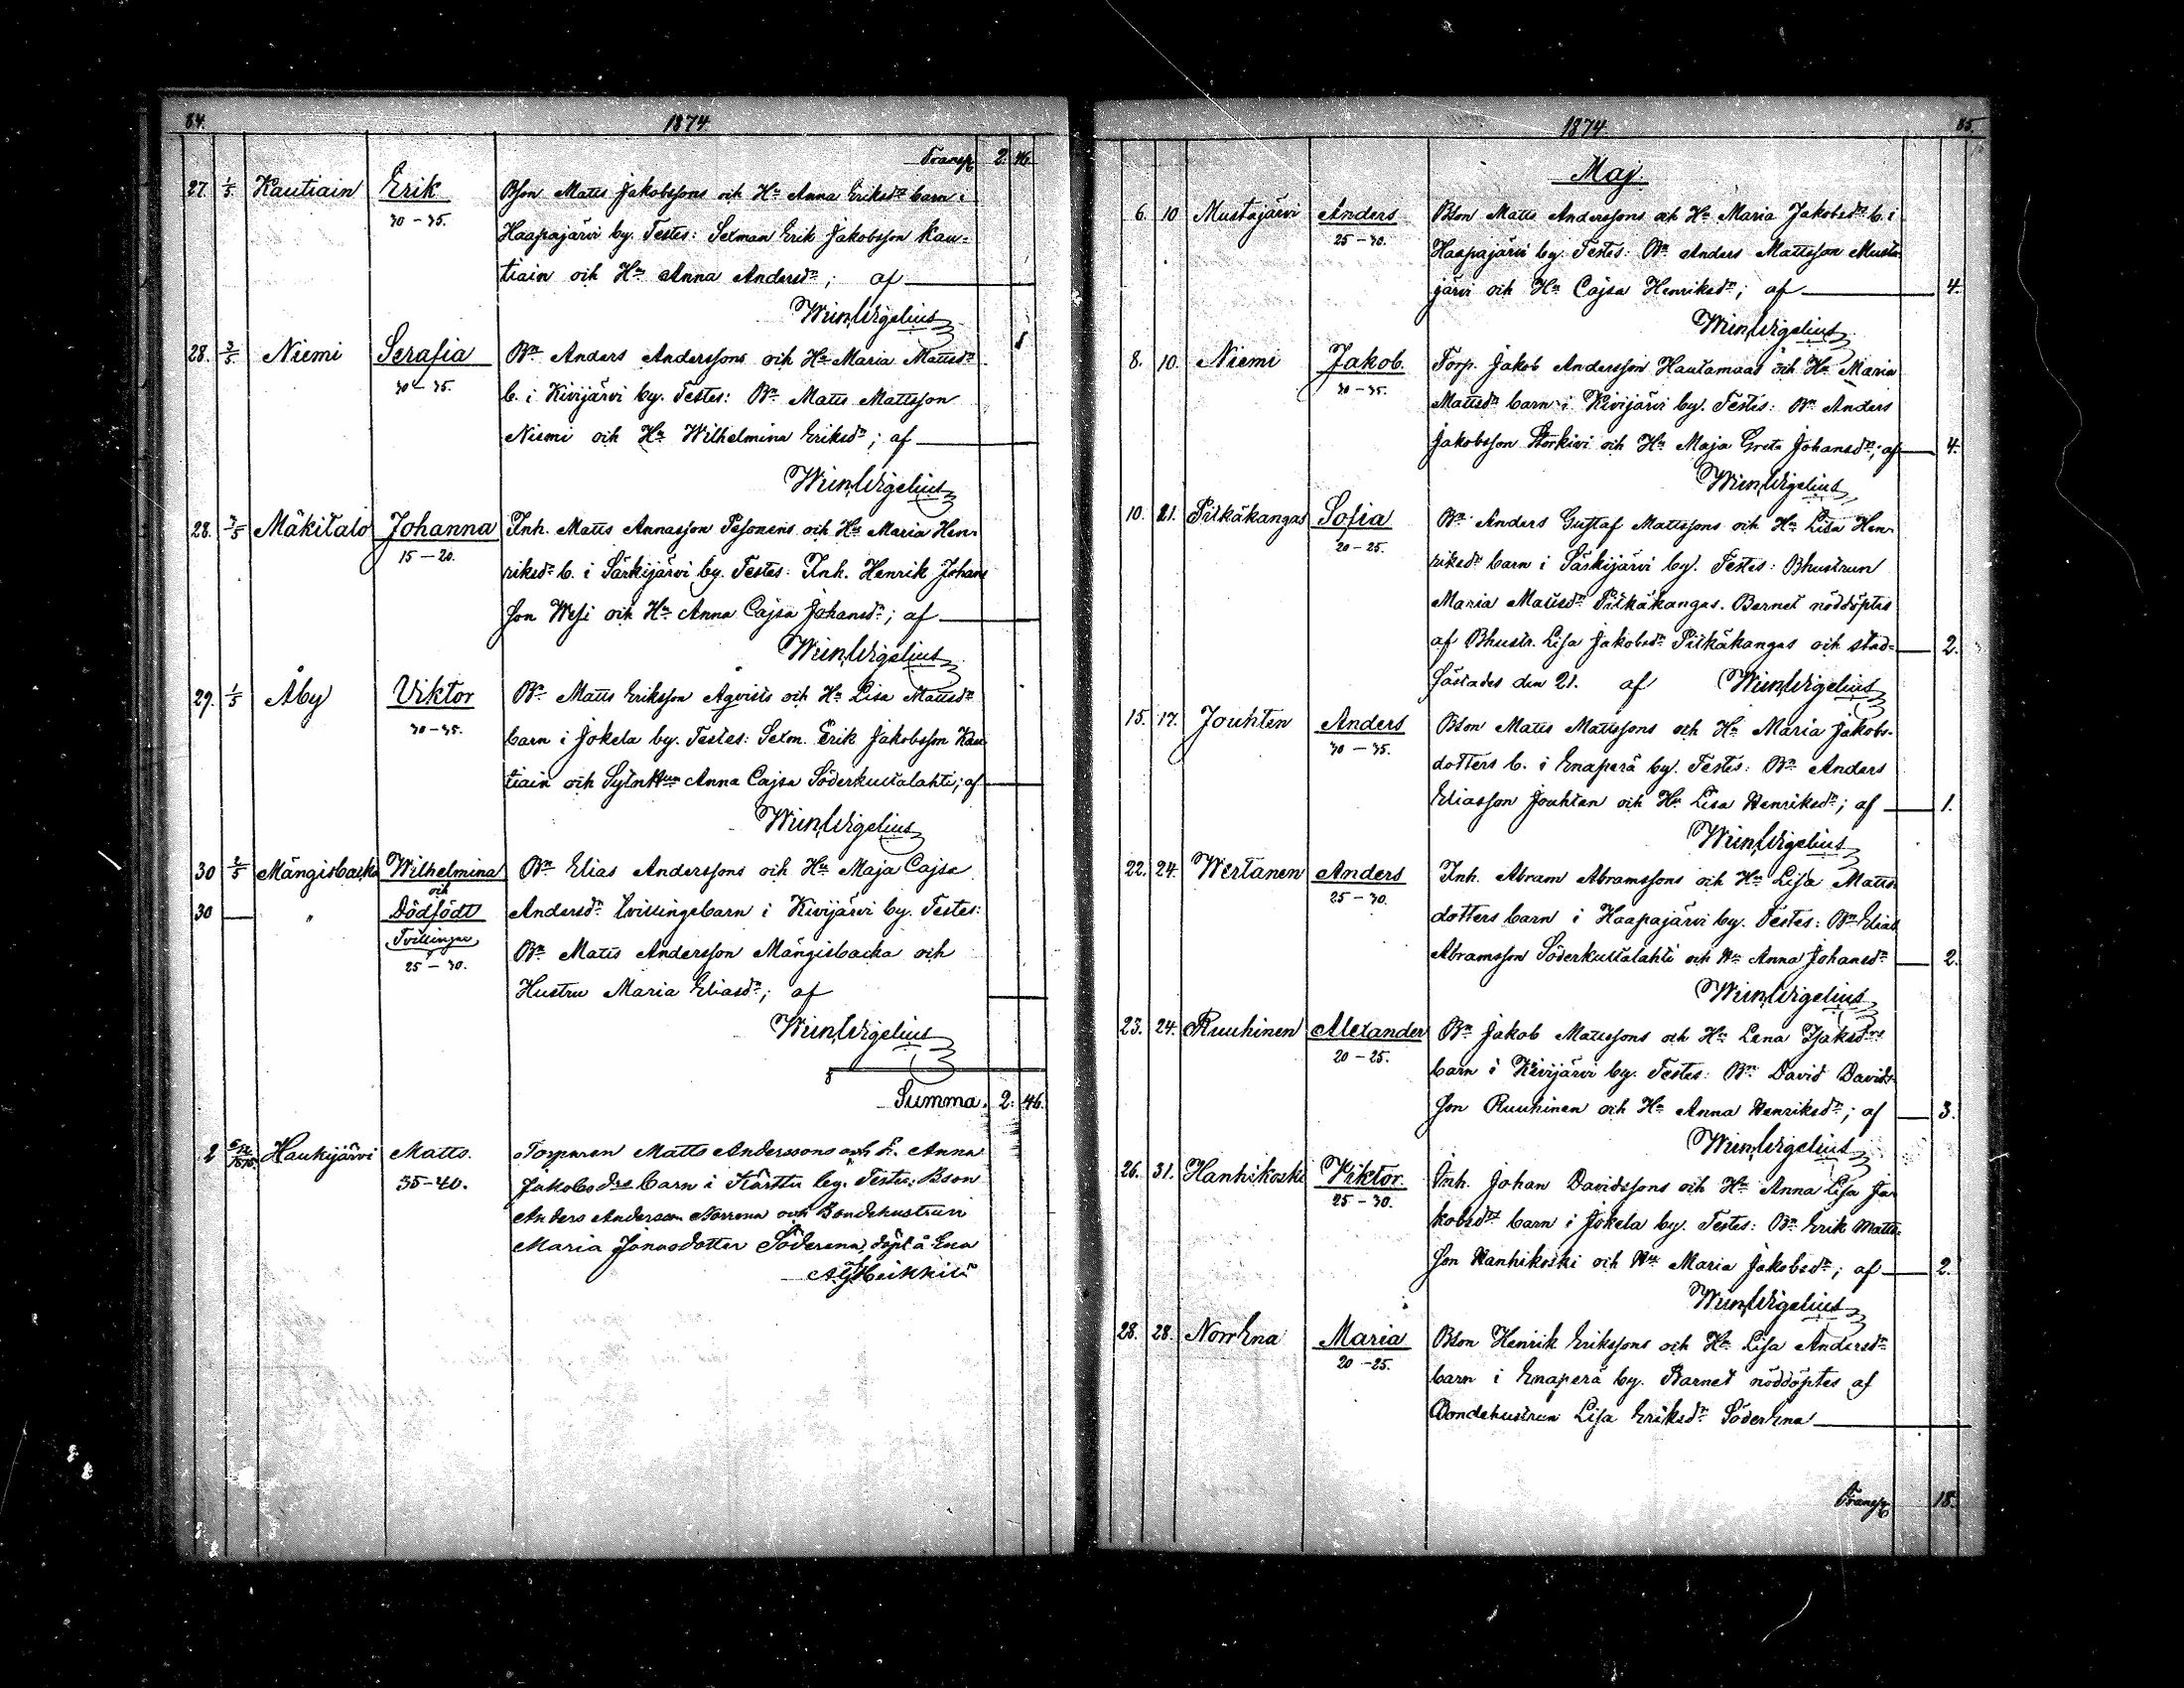 84. 1874
Transp 2. 46.
27. 1/5 Kautiain Erik Bson Matts Jakobssons och Hu Anna Eriksdrs barn i
30-35. Haapajärvi by. Testes: Sexman Erik Jakobsson Kau-
tiain och Hu Anna Andersdr; af
Wm Wigelius
28. 3/5 Niemi Serafia Bn Anders Anderssons och Hu Maria Mattsdrs
30-35. b. i Kivijärvi by. Testes: Bn Matts Mattsson
Niemi och Hu Wilhelmina Eriksdr; af
Wm Wigelius
28. 3/5 Mäkitalo Johanna Inh. Matts Annasson Pesonens och Hu Maria Hen-
15-20. riksdrs b. i Särkijärvi by. Testes: Inh. Henrik Johans
son Wesi och Hu Anna Cajsa Johansdr; af
Wm Wigelius
29. 1/5 Åby Viktor Bn Matts Eriksson Agvists och Hu Lisa Mattsdrs
30-35. barn i Jokela by. Testes: Sexm. Erik Jakobsson Kau
tiain och Sytn Hun Anna Cajsa Söderkultalahti; af
Wm Wigelius
30 2/5 Mängisbacka Wilhelmina Bn Elias Anderssons och Hu Maja Cajsa
och
30 " Dödfödt Andersdrs tvillingsbarn i Kivijärvi by. Testes:
Tvillingar Bn Matts Andersson Mängisbacka och
25-30. Hustru Maria Eliasdr; af
Wm Wigelius
Summa. 2. 46.
2 Haukijärvi Matts. Torparen Matts Anderssons och h. Anna
35-40. Jakobsdrs barn i Kärttu by. Testes: Bson
Anders Andersson Norrena och Bondehustrun
Maria Jonasdotter Söderena, döpt å Ena
A G Heikkilä
1874 85.
Maj.
6. 10 Mustajärvi Anders Bson Matts Anderssons och Hu Maria Jakobsdrs b. i
25-30. Haapajärvi by. Testes: Bn Anders Mattsson Musta
järvi och Hu Cajsa Henriksdr; af 4.
Wm Wigelius
8. 10. Niemi Jakob. Torp. Jakob Andersson Hautamaas och Hu Maria
30-35. Mattsdrs barn i Kivijärvi by. Testes: Bn Anders
Jakobsson Storkivi och Hu Maja Greta Johansdr; af 4.
Wm Wigelius
10. 21. Pitkäkangas Sofia Bn Anders Gustaf Mattssons och Hu Lisa Hen-
20-25. riksdrs barn i Särkijärvi by. Testes: Bhustrun
Maria Mattsdr Pitkäkangas. Barnet nöddöptes
af Bhustr. Lisa Jakobsdr Pitkäkangas och stad- 2.
fästades den 21. af Wm Wigelius
15. 17. Jouhten Anders Bson Matts Mattssons och Hu Maria Jakobs-
30-35. dotters b. i Enaperä by. Testes: Bn Anders
Eliasson Jouhten och Hu Lisa Henriksdr; af 1.
Wm Wigelius
22. 24. Wertanen Anders Inh. Abram Abramssons och Hu Lisa Matts
25-30. dotters barn i Haapajärvi by. Testes: Bn Elias
Abramsson Söderkultalahti och Hu Anna Johansdr 2.
Wm Wigelius
23. 24. Ruuhinen Alexander Bn Jakob Mattssons och Hu Lena Isaksdrs
20-25. barn i Kivijärvi by. Testes: Bn David Davids-
son Ruuhinen och Hu Anna Henriksdr; af 3.
Wm Wigelius
26. 31. Hanhikoski Viktor. Inh. Johan Davidssons och Hu Anna Lisa Ja
25-30. kobsdrs barn i Jokela by. Testes: Bn Erik Matts-
son Hanhikoski och Hu Maria Jakobsdr; af 2.
Wm Wigelius
28. 28. NorrEna Maria Bson Henrik Erikssons och Hu Lisa Andersdrs
20-25. barn i Enaperä by. Barnet nöddöptes af
Bondehustrun Lisa Eriksdr SöderEna
Transp 18.